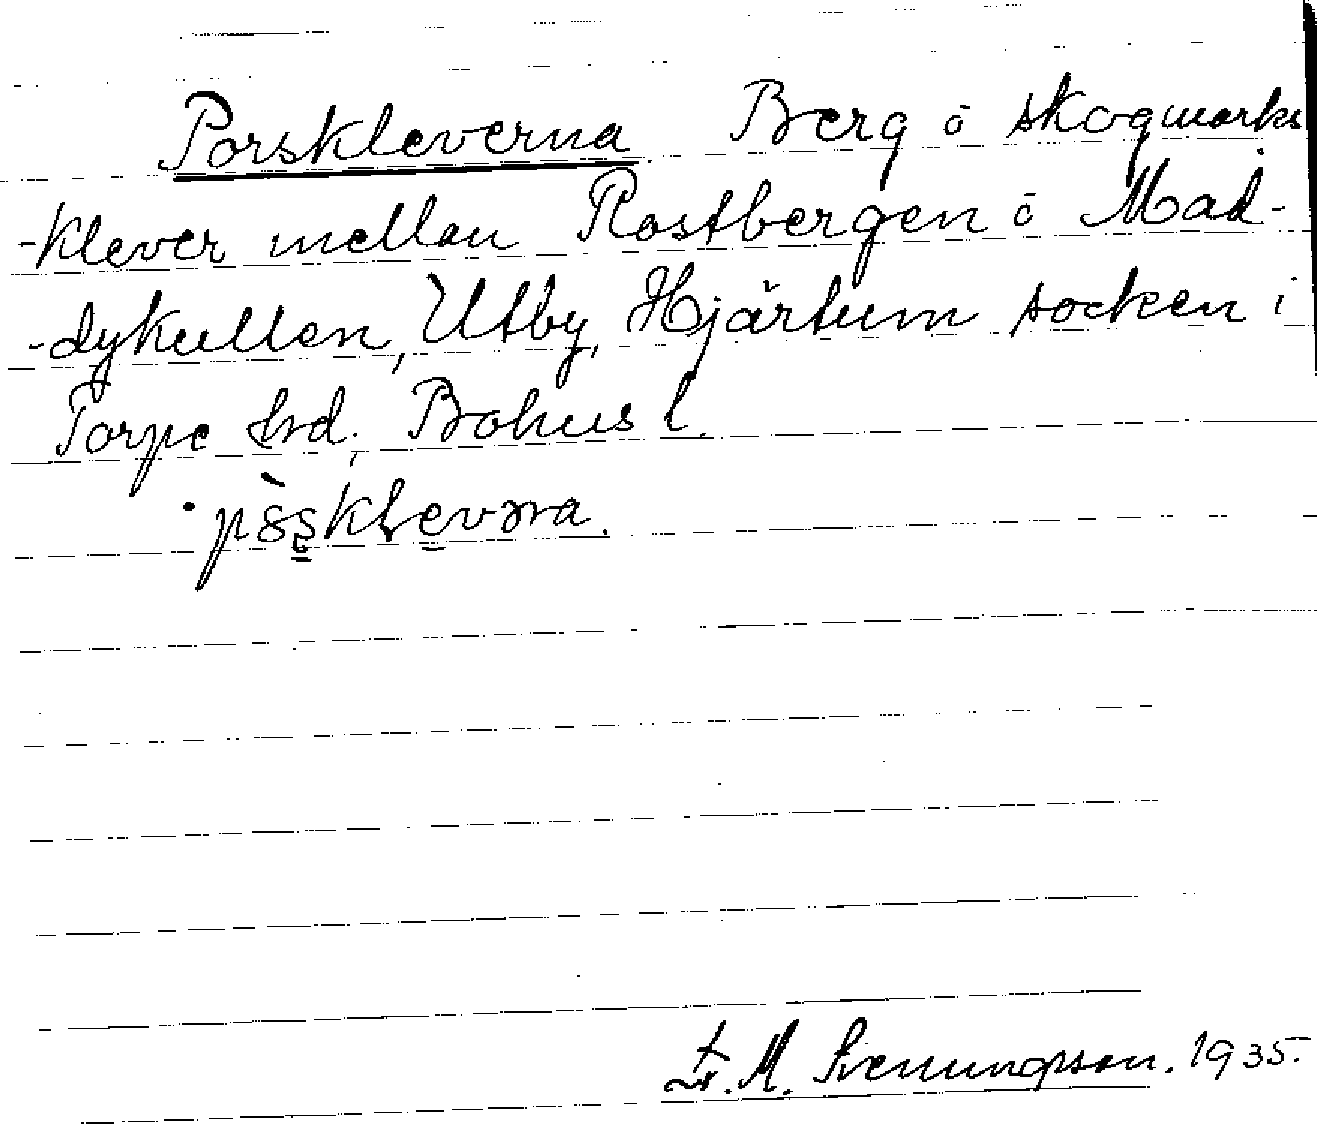 Porskleverna Berg o skogmarks
-klever mellan Rostbergen o Mad-
-dykullen, Utby, Hjärtum socken i
Torpe hrd., Bohus l.
Fr. M. Svenungsson. 1935.